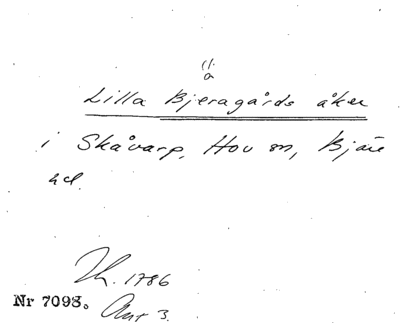 (l.
a
Lilla Bjeragårds åker
i Skåvarp, Hov sn, Bjäre
hd.
Lh. 1786
Nr 7098. Ant 3.